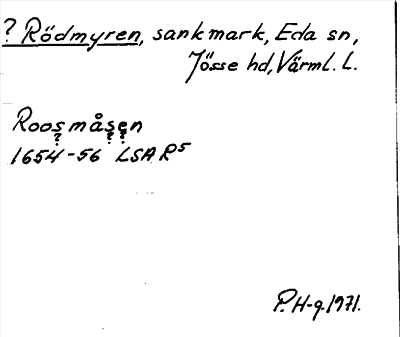 ? Rödmyren, sankmark, Eda sn,
Jösse hd, Värml. L.
Roosmåsen
? ? ?
1654-56 LSA R5
P. H-g. 1971.